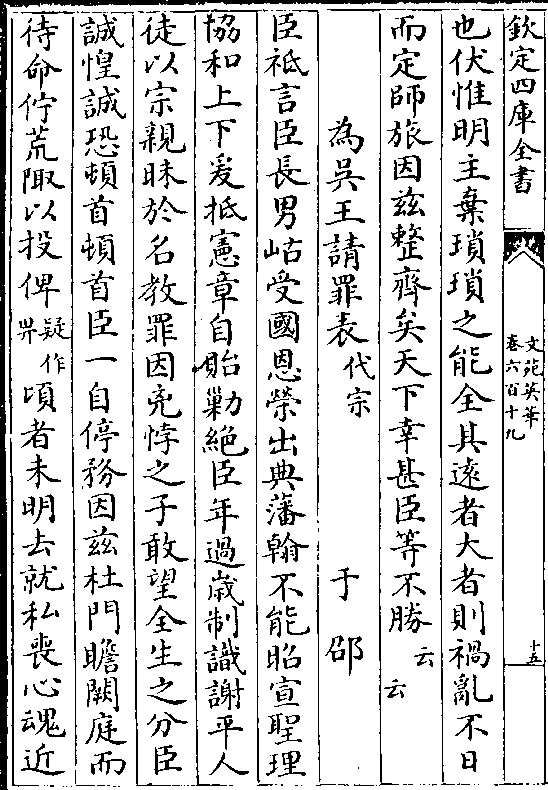 欽定四庫全書
文苑英華
卷六百十九
十五
也伏惟明主棄瑣瑣之能全其遠者大者則禍亂不日
而定師旅因兹整齊矣天下幸甚臣等不勝云云
為吳王請罪表代宗 于邵
臣祗言臣長男岵受國恩榮出典藩翰不能昭宣聖理
協和上下爰抵憲章自貽勦絶臣年過歲制識謝平人
徒以宗親昧於名教罪因兇悖之子敢望全生之分臣
誠惶誠恐頓首頓首臣一自停務因兹杜門瞻闕庭而
待命佇荒陬以投俾疑作畀頃者未明去就私喪心魂近